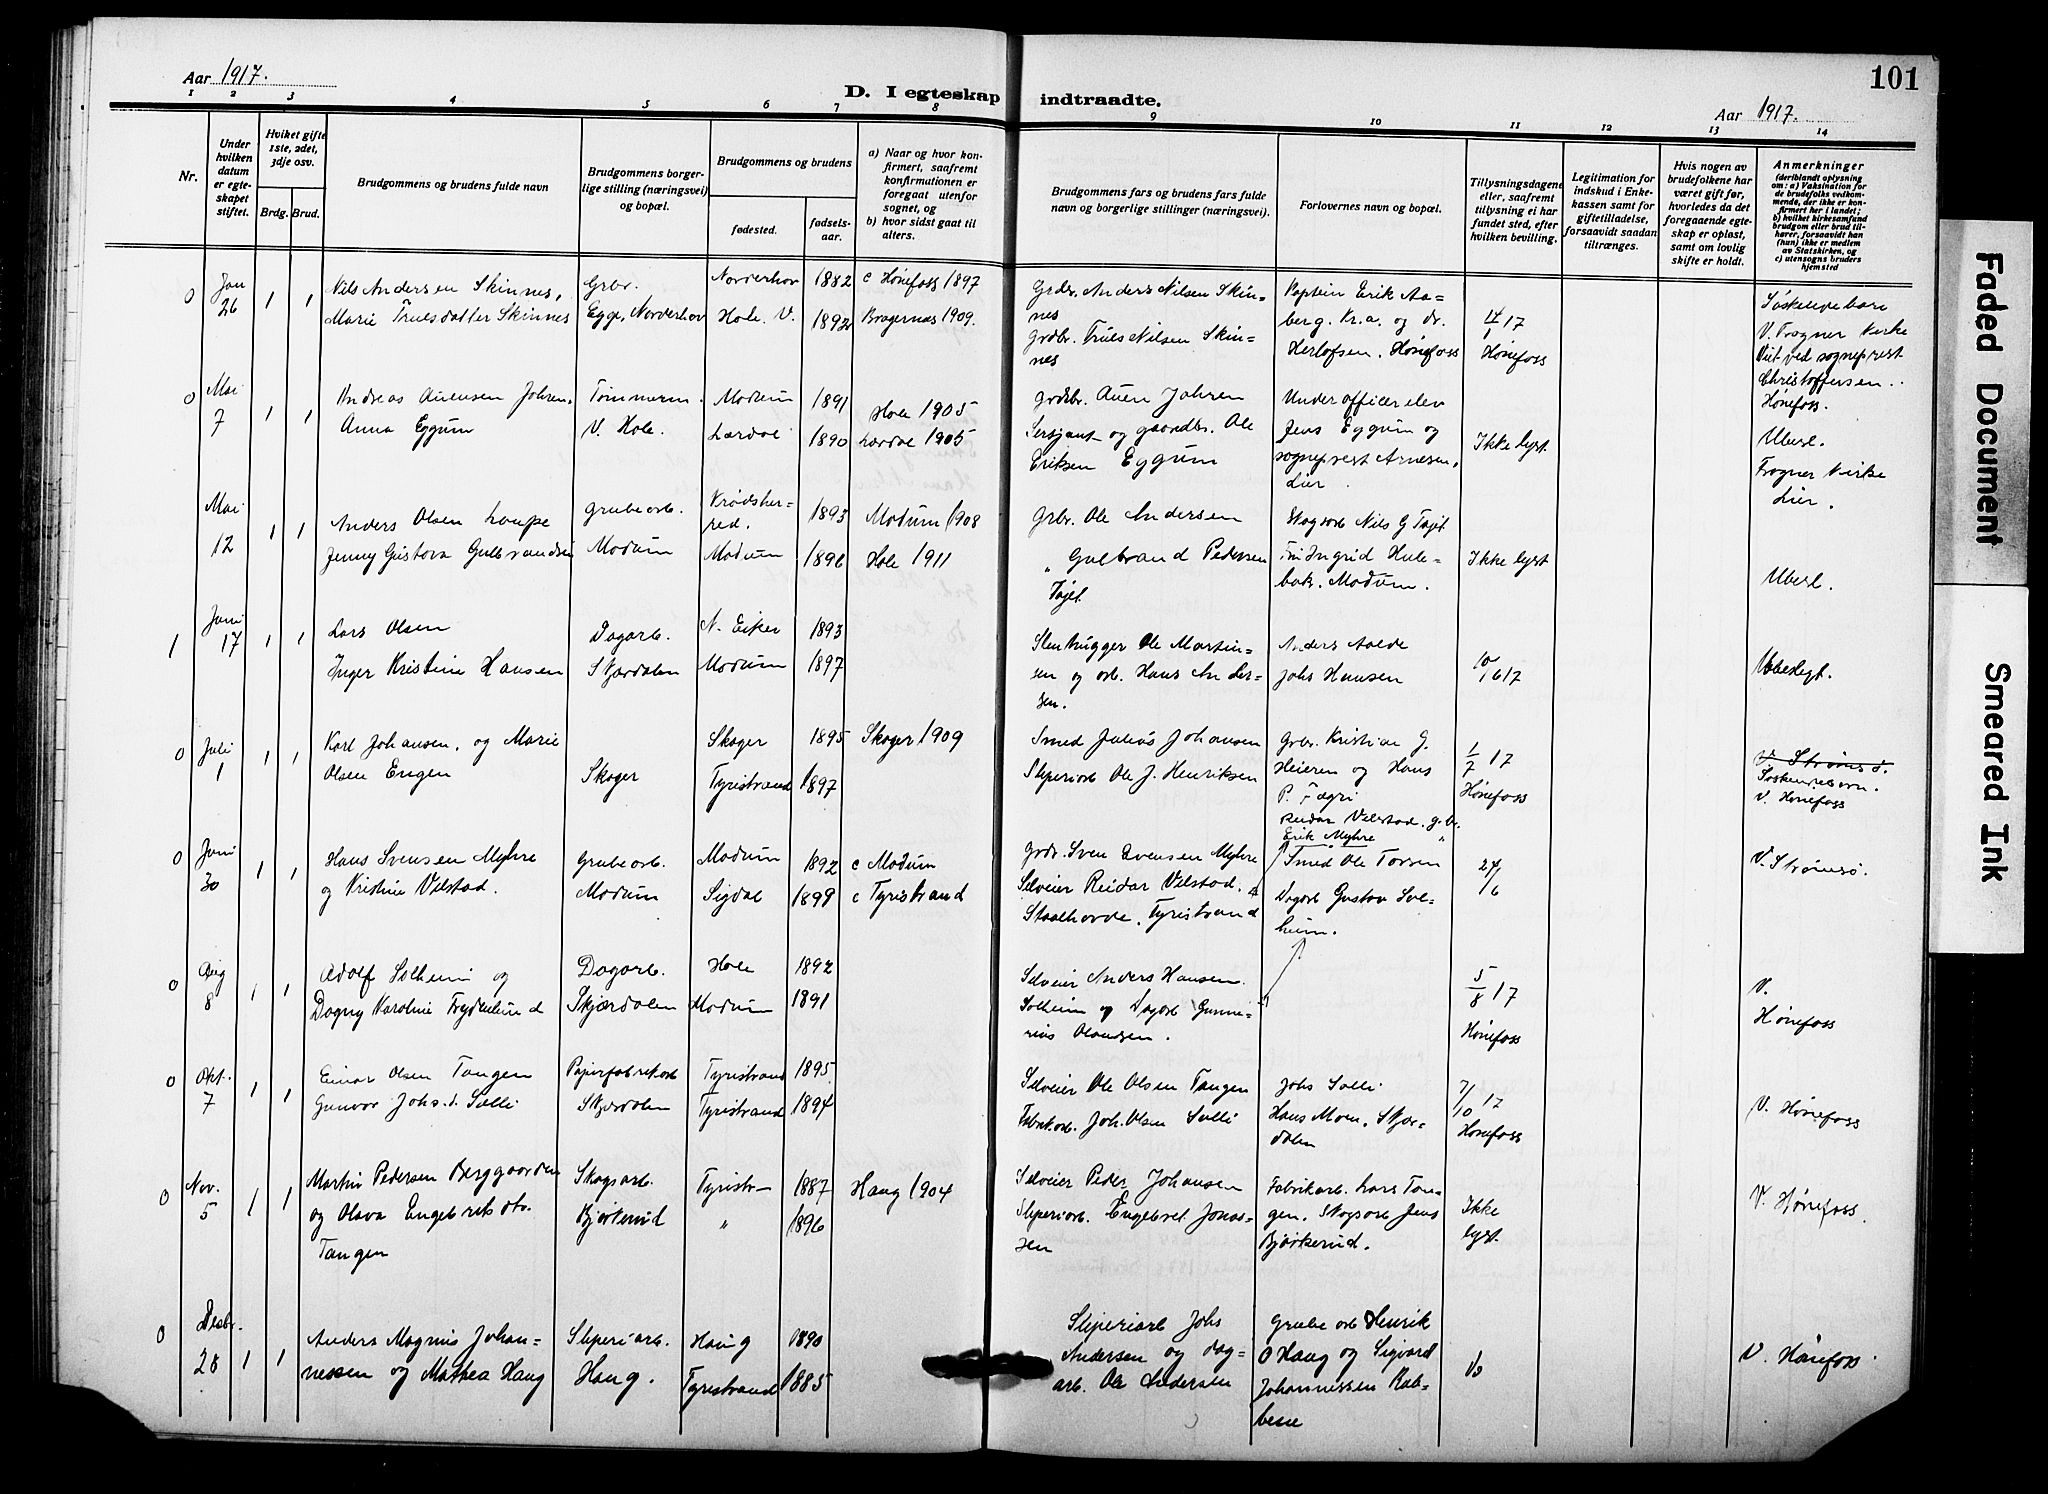 Aar 1917.
D. I egteskap indtraadte.
Aar 1917.
101
1 2 3 4 5 6 7 8 9 10 11 12 13 14
Nr.
Under hvilken datum er egteskapet stiftet.
Hvilket gifte 1ste, 2det, 3dje osv.
Brdg. Brud.
Brudgommens og brudens fulde navn
Brudgommens borgerlige stilling (næringsvei) og bopæl.
Brudgommens og brudens
fødested.
fødselsaar.
a) Naar og hvor konfirmert, saafremt konfirmationen er foregaat utenfor sognet, og
b) hvor sidst gaat til alters.
Brudgommens fars og brudens fars fulde navn og borgerlige stillinger (næringsvei).
Forlovernes navn og bopæl.
Tillysningsdagene eller, saafremt tillysning ei har fundet sted, efter hvilken bevilling.
Legitimation for indskud i Enkekassen samt for giftetilladelse, forsaavidt saadan tiltrænges.
Hvis nogen av brudefolkene har været gift før, hvorledes da det foregaaende egteskap er opløst, samt om lovlig skifte er holdt.
Anmerkninger
(deriblandt oplysning om: a) Vaksination for de brudefolks vedkommende, der ikke er konfirmert her i landet; b) hvilket kirkesamfund brudgom eller brud tilhører, forsaavidt han (hun) ikke er medlem av Statskirken, og c) utensogns bruders hjemsted
0 Jan 26 1 1
Nils Andersen Skinnes,
Marie Truesdatter Skinnes
Grbr.
Egge, Norderhov
Norderhov 1882 c Hønefoss 1897
Hole. V. 1892 Bragernes 1909.
Grdbr. Anders Nilsen Skinnes
grdbr. Truls Nilsen Skinnes
Kaptein Erik Aaberg. Kr.a. og dr.
Herlofsen. Hønefoss
14/1 17
Hønefoss
Søskendebarn
V. Fragner Kirke
Viet ved sogneprest
Christoffersen..
Hønefoss.
0 Mai 7 1 1
Andreas Auensen Johren.
Anna Eggum
Tømmerm.
V. Hole.
Modum 1891 Hole 1905
Lærdal 1890 Lærdal 1905
grdbr. Auen Johren
Sersjant og gaardbr. Ole
Eriksen Eggum
Underofficerelev
Jens Eggum og
sogneprest Arnesen,
Lier.
Ikke lyst.
Ubesl.
Frogner Kirke
Lier.
Mai 12 1 1
Anders Olsen Loupe
Jenny Gustava Gulbrandsen
Grubearb.
Modum
Krødsherred. 1893 Modum 1908
Modum 1896 Hole 1911
Grbr. Ole Andersen
" Gulbrand Pedersen
Tajet
Skogsarb Nils G Tajet
Fru Ingrid Hulebak. Modum.
Ikke lyst
Ubesl.
1 Juni 17 1 1
Lars Olsen
Inger Kristine Hansen
Dagarb.
Skjærdalen
N. Eiker 1893
Modum 1897
Stenhugger Ole Martinsen og arb. Hans Andersen.
Anders Aalde
Johs Hansen
10/6 17
Ubeslegt.
0 Juli 1 1 1
Karl Johansen, og Marie
Olsen Engen
Skoger
Skoger 1895 Skoger 1909
Tyristrand 1897
Smed Julius Johansen
Sliperiarb Ole J. Henriksen
Grbr. Kristian G.
Heieren og Hans
P. Fægri
1/7 17
Hønefoss
V Strømsø.
Søskendebarn.
V. Hønefoss
0 Juni 30 1 1
Hans Svensen Myhre
og Kristine Vilstad.
Grubearb.
Modum
Modum 1892 c Modum
Sigdal 1899 c Tyristrand
grdr. Sven Evensen Myhre
Selveier Reidar Vilstad.
Staalhorde. Tyristrand
Reidar Vilstad. g.br.
Erik Myhre "
24/6
V. Strømsø.
0 Aug 8 1 1
Adolf Solheim og
Dagny Karoline Frydenlund
Dagarb.
Skjærdalen
Hole 1892
Modum 1891
Selveier Anders Hansen.
Solheim og Dagarb Gunnerius Olausen.
Smed Ole Torsen
Dagarb Gustav Solheim.
5/8 17
Hønefoss
V.
Hønefoss
0 Okt. 7 1 1
Einar Olsen Tangen
Gunvor Johs.d. Solli
Papirfabrikarb
Skjærdalen
Tyristrand 1895
Tyristrand 1894
Selveier Ole Olsen Tangen
Fabrikarb. Joh. Olsen Solli
Johs Solli
Hans Moen, Skjærdalen
7/10 17
Hønefoss
V. Hønefoss
0 Nov. 5 1 1
Martin Pedersen Berggaarden
og Olava Engebretsdtr.
Tangen
Skogsarb.
Bjørkerud
Tyristr- 1887 Haug 1904
" 1896
Selveier Peder Johansen
Sliperiarb. Engebret Jonassen
Fabrikarb. Lars Tangen. Skogsarb Jens
Bjørkerud.
Ikke
lyst.
V. Hønefoss.
0 Desbr. 28 1 1
Anders Magnus Johannessen og Mathea Haug
Sliperiarb.
Haug.
Haug 1890
Tyristrand 1885
Sliperiarb Johs
Andersen og dagarb. Ole Andersen
Grubearb Henrik
O Haug og Sigvard
Johannessen Rabbesve
V. Hønefoss
Faded Document
Smeared Ink